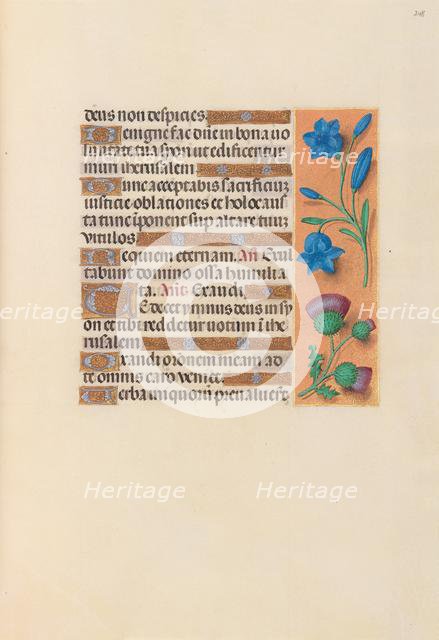 248
deus non despicies.
Benigne fac dñe in bona uo
luntate tua syon: ut edificentur
muri iherusalem
Tunc acceptabis sacrificiuʒ
iusticie oblationes et holocaus
ta tunc īponent sup altare tuuʒ
uitulos
Requiem eternam. Añ Exul
tabunt domino ossa humilia
ta. Añ: Exaudi
Te decet ymnus deus in sy
on et tibi reddetur uotum ī ihe
rusalem
Exaudi orõnem meam ad
te omnis caro veniet.
Uerba iniquorũ preualuert
Heritage Heritage
Heritage Heritage
Heritage Heritage